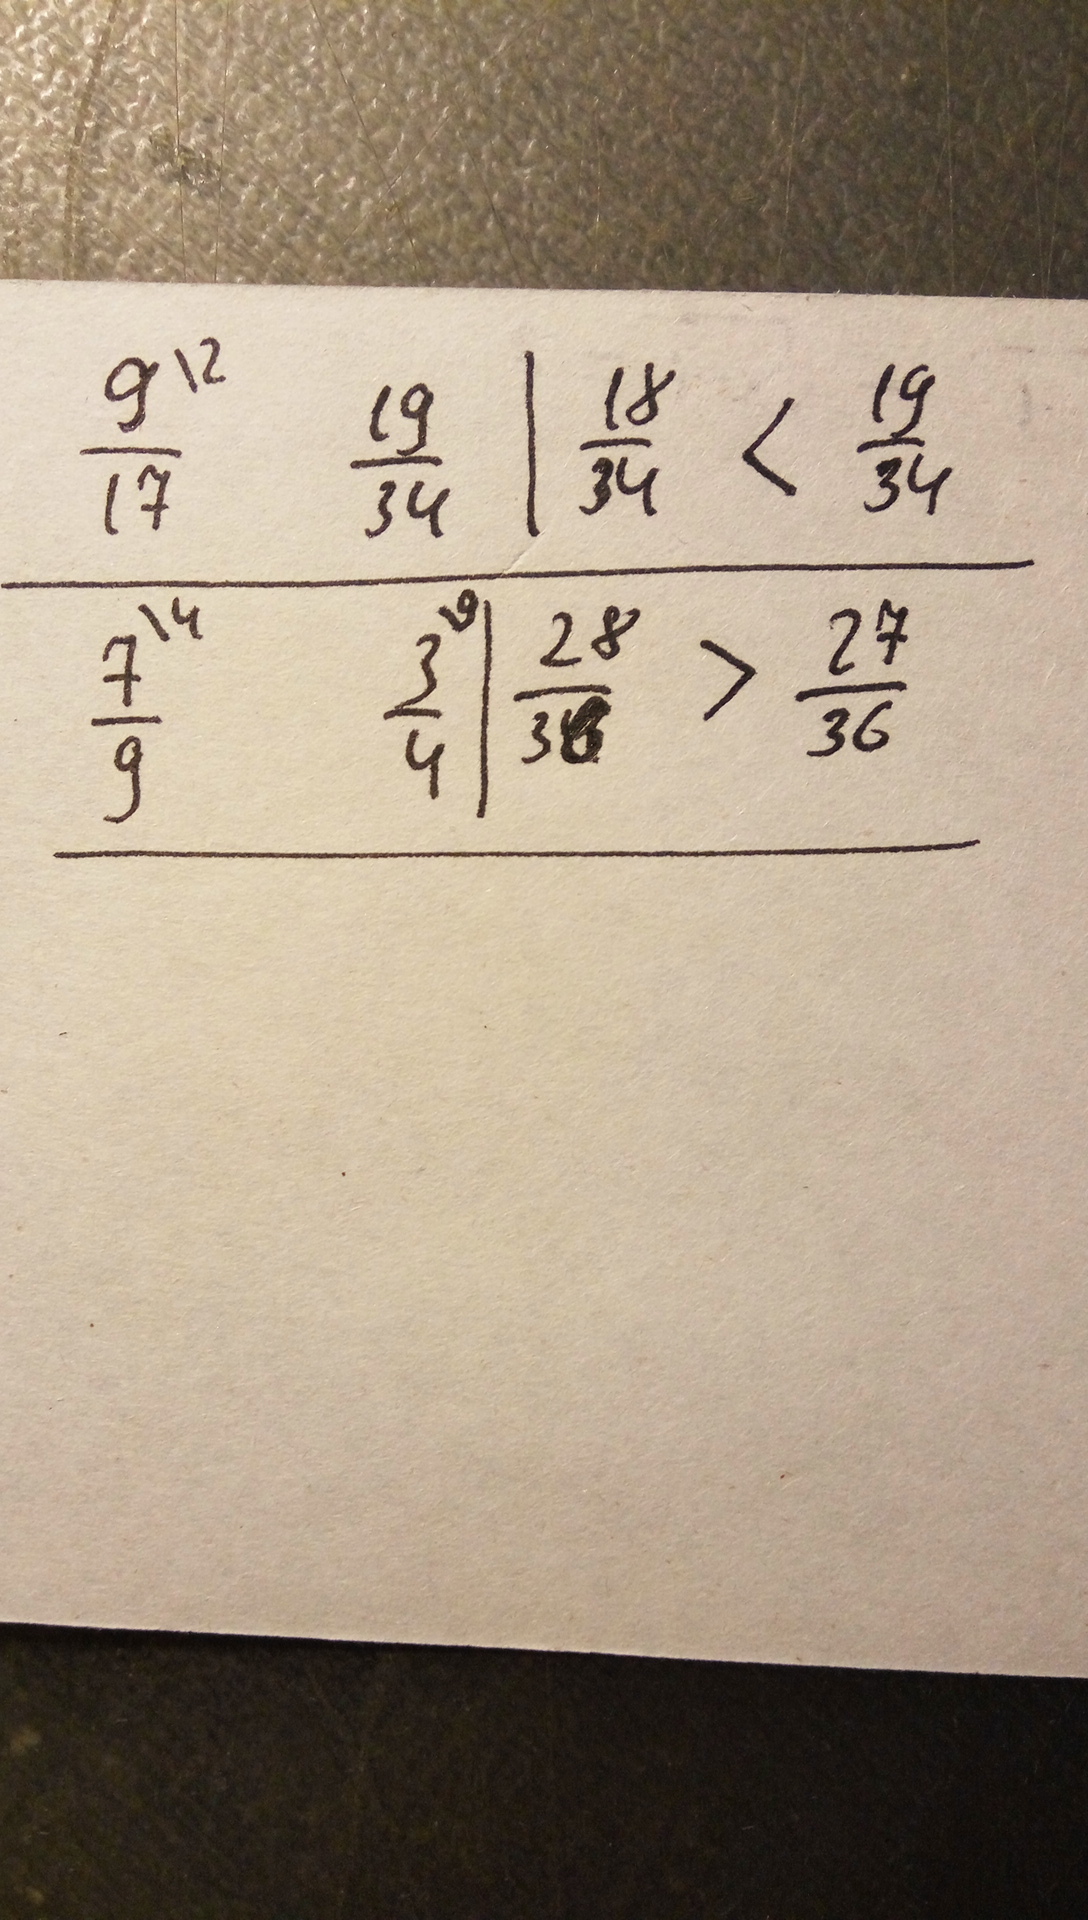 9\2/17 19/34 | 18/34 < 19/34
7\4/9 3\9/4 | 28/36 > 27/36